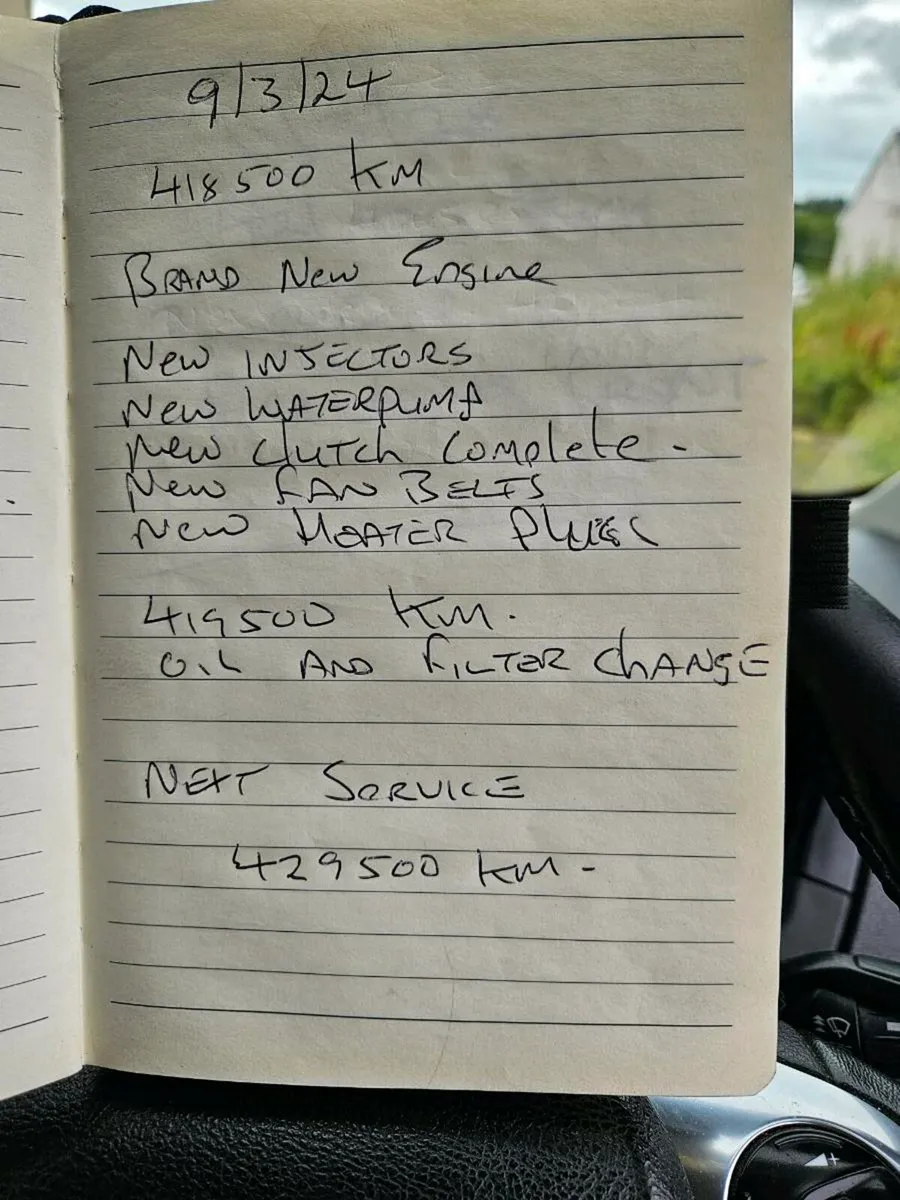 9/3/24
418500 KM
BRAND New Engine
New INJECTORS
New WATERPUMP
New Clutch Complete.
New FAN BELTS
New HEATER PLUGS
419500 KM.
OIL AND FILTER ChANGE
NEXT SERVICE
429500 KM.